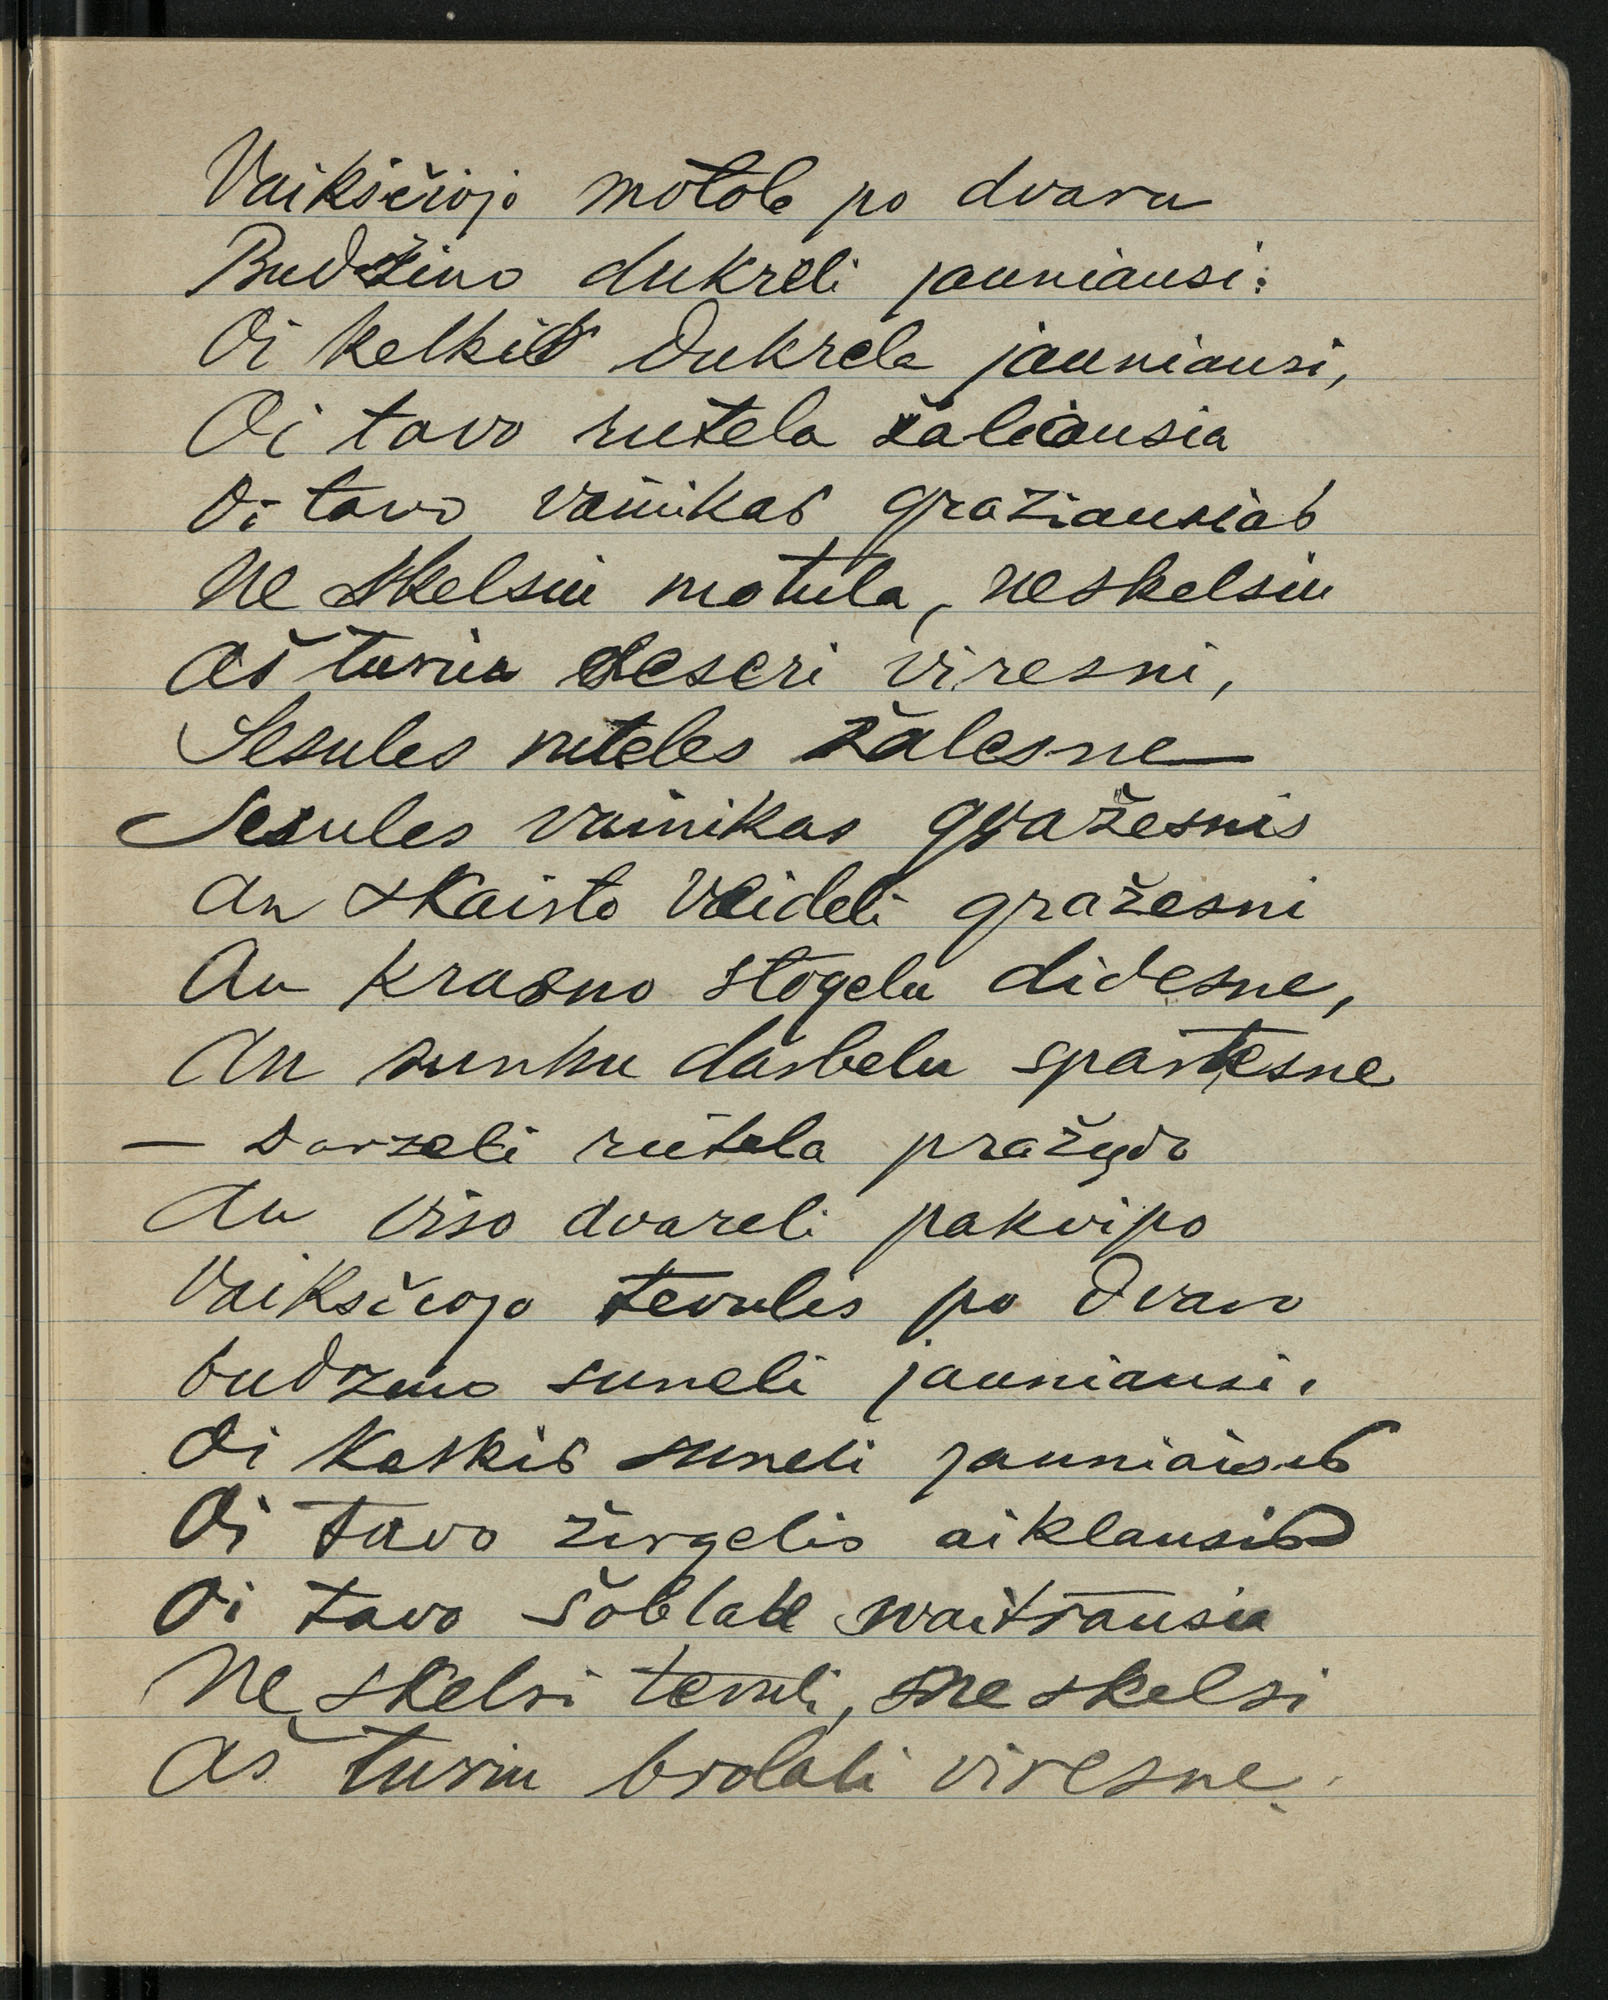 Vaiksčiojo motole po dvaru
Budžino dukreli jauniausi:
Oi kelkis dukrele jauniausi,
Oi tavo rutela žaliausia
Oi tavo vainikas gražiausias
Ne skelsiu motula, neskelsiu
Aš turiu seseri viresni,
Sesules ruteles žalesne
Sesules vainikas gražesnis
An skaisto veideli gražesni
An krasno stogelu didesne,
An sunku darbelu spartesne
— Darzeli rutela pražydo
An viso dvareli pakvipo
Vaiksčiojo tevulis po dvaro
budzino suneli jauniausi.
Oi kelkis suneli jauniausis
Oi tavo žirgelis aiklausis
Oi tavo šoblale svaitrausia
Ne skelsi tevuli, ne skelsi
Aš turiu brolali viresne.